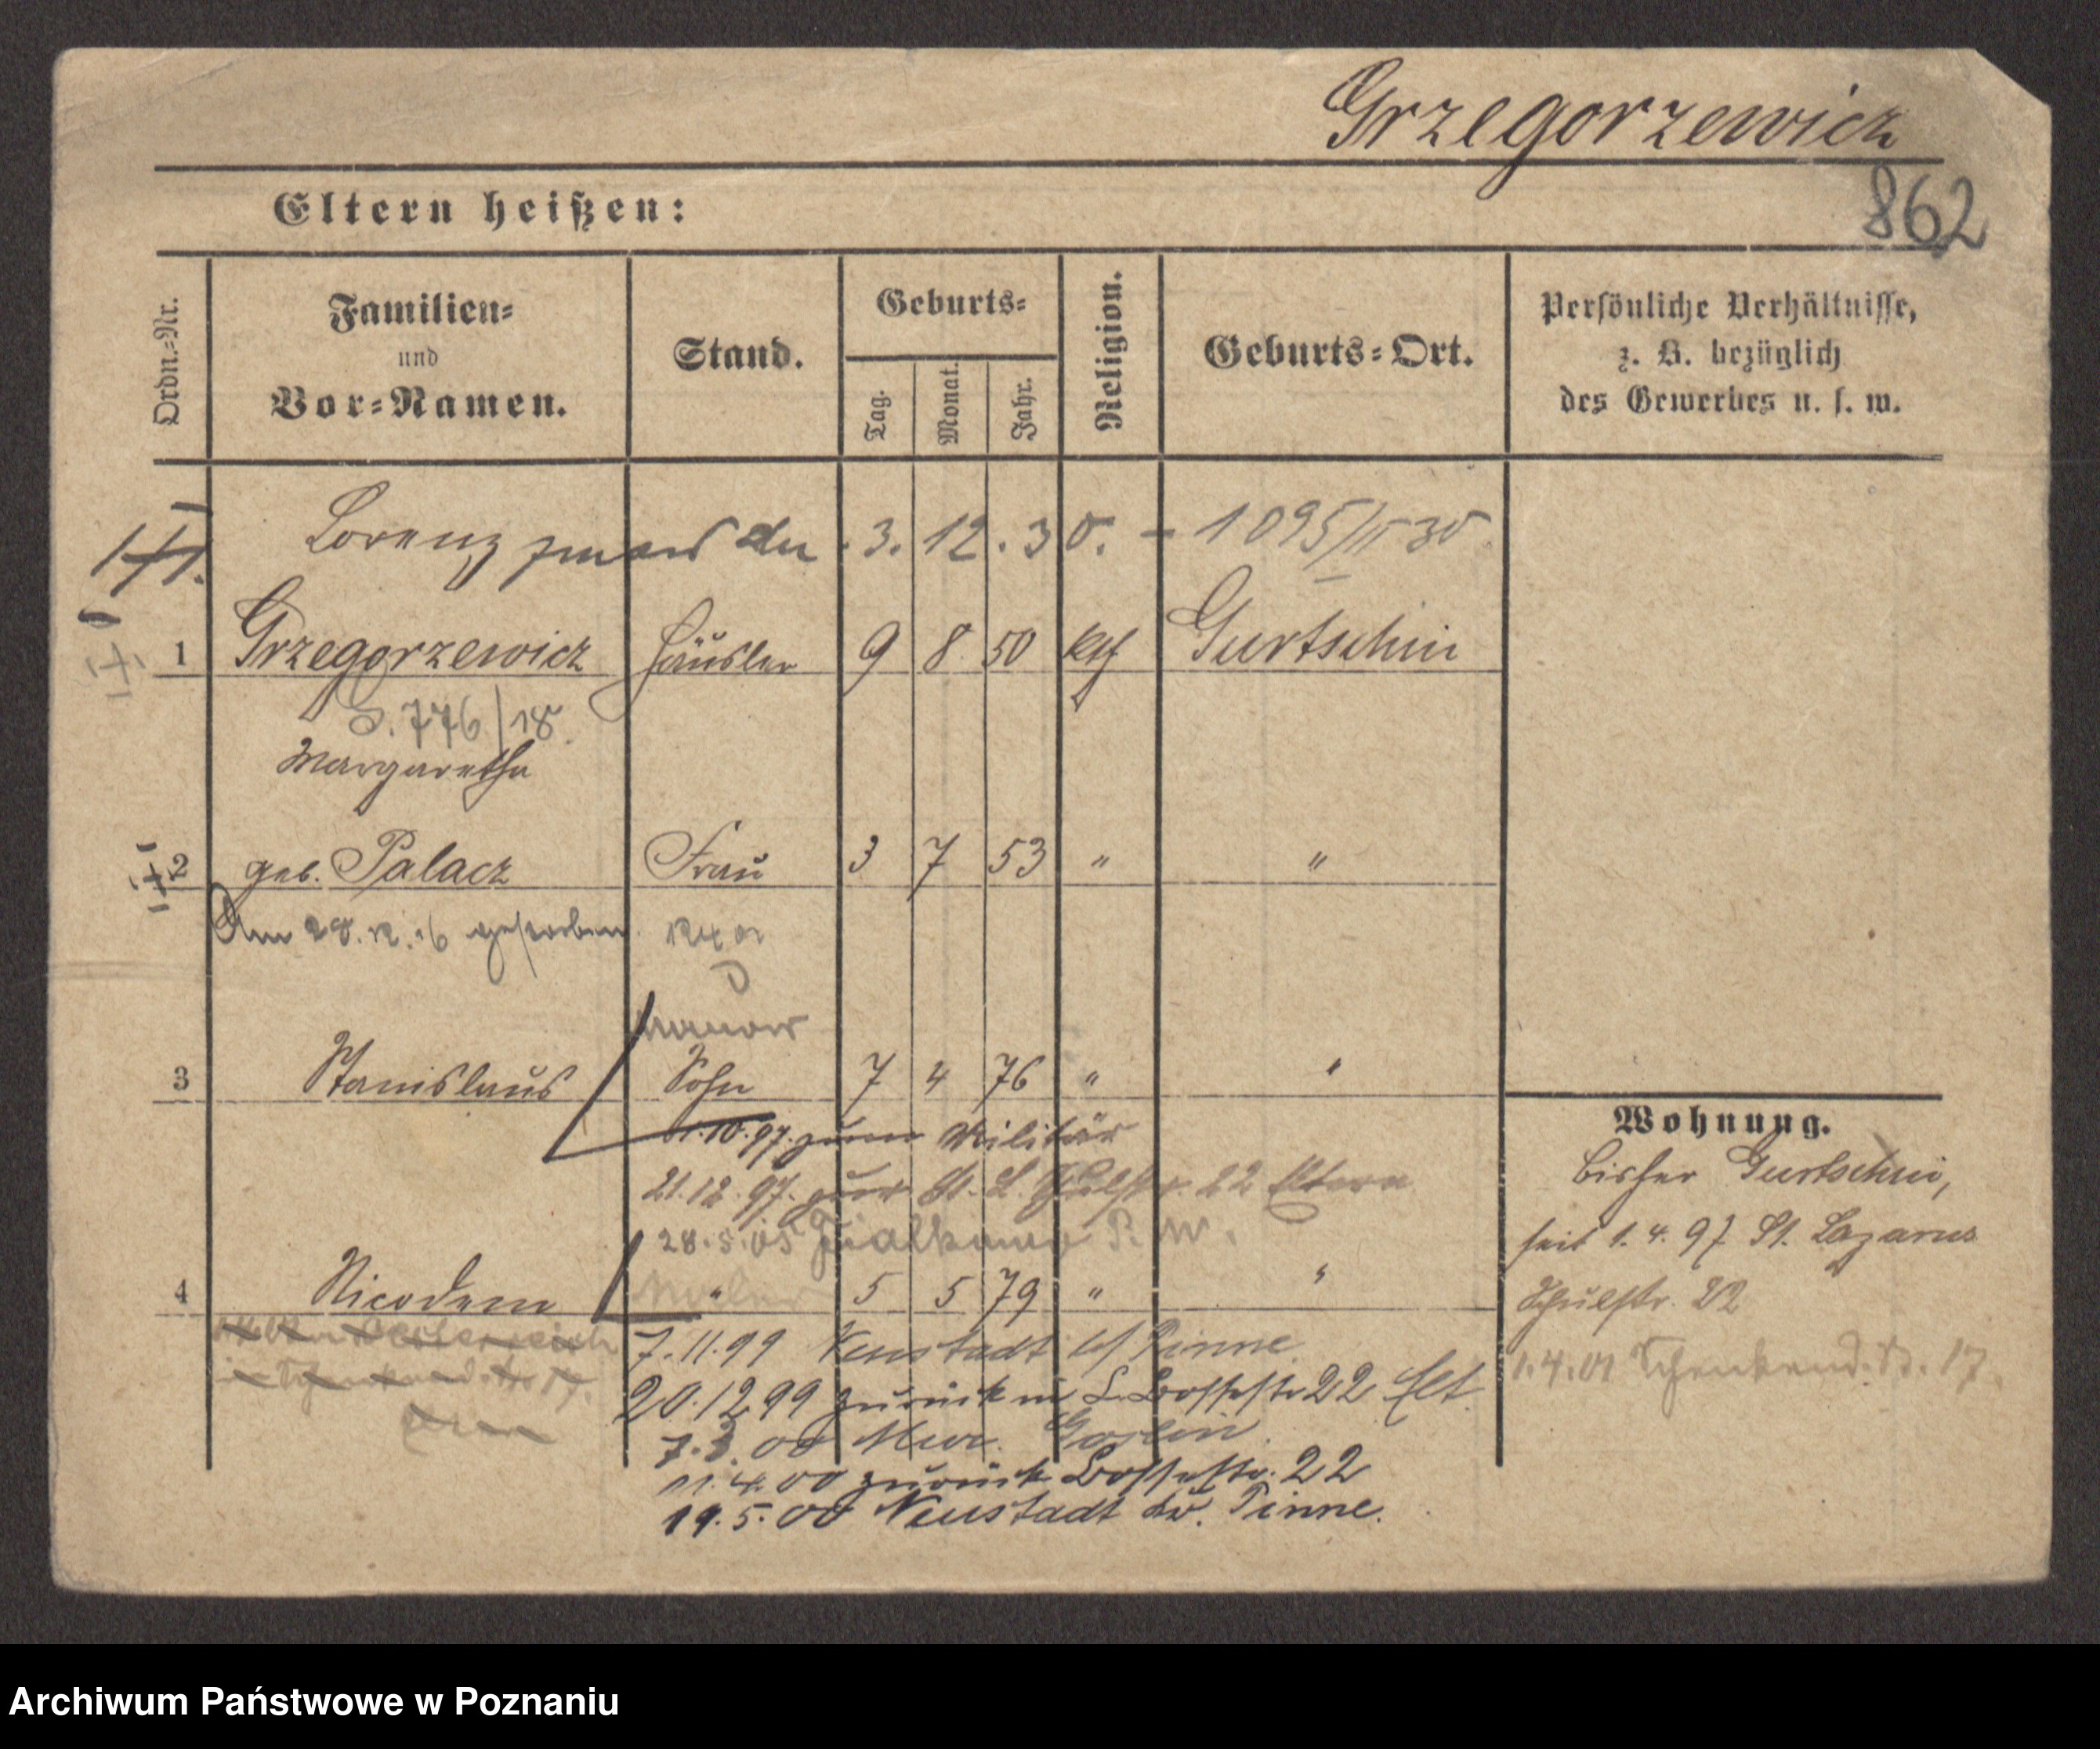 Grzegorzewicz
862
Eltern heißen:
Ordn.-Nr.
Familien-
und
Vor-Namen.
Stand.
Geburts-
Tag.
Monat.
Jahr.
Religion.
Geburts-Ort.
Persönliche Verhältnisse,
z. B. bezüglich
des Gewerbes u. s. w.
Lorenz zmarł dn. 3. 12. 30. - 1095/II 30
1 Grzegorzewicz Häusler 9 8 50 kth Gurtschin
S. 776/18
Margaretha
2 geb. Palacz Frau 3 7 53 " "
Am 28. 12. 16 gestorben
3 Stanislaus Sohn 7 4 76 " "
1.10.97. zum Militär
21.12.97. zur. St. L. Schulstr. 22 Eltern
28.5.05 Fialkowo P. W.
4 Nicodem " 5 5 79 " "
7.11.99 Neustadt b/ Pinne
20.12 99 zurück in L. Bossestr 22 Elt.
7.3.00
11.4.00 zurück Bossestr. 22
19.5.00 Neustadt b. Pinne.
Wohnung.
bisher Gurtschin,
seit 1. 4. 97 St. Lazarus
Schulstr. 22
1.4.01 Schenkend. Str. 17.
Archiwum Państwowe w Poznaniu